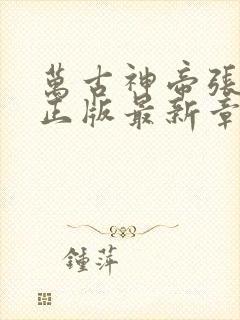 萬古神帝張
正版最新章
鍾萍